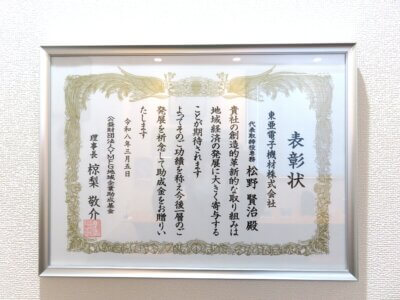 表彰状
東亜電子機材株式会社
代表取締役専務 松野 賢治 殿
貴社の創造的革新的な取り組みは
地域経済の発展に大きく寄与する
ことが期待されます
よってそのご功績を称え今後一層のご
発展を祈念して助成金をお贈りい
たします
令和八年三月五日
公益財団法人YMFG地域企業助成基金
理事長 椋梨 敬介